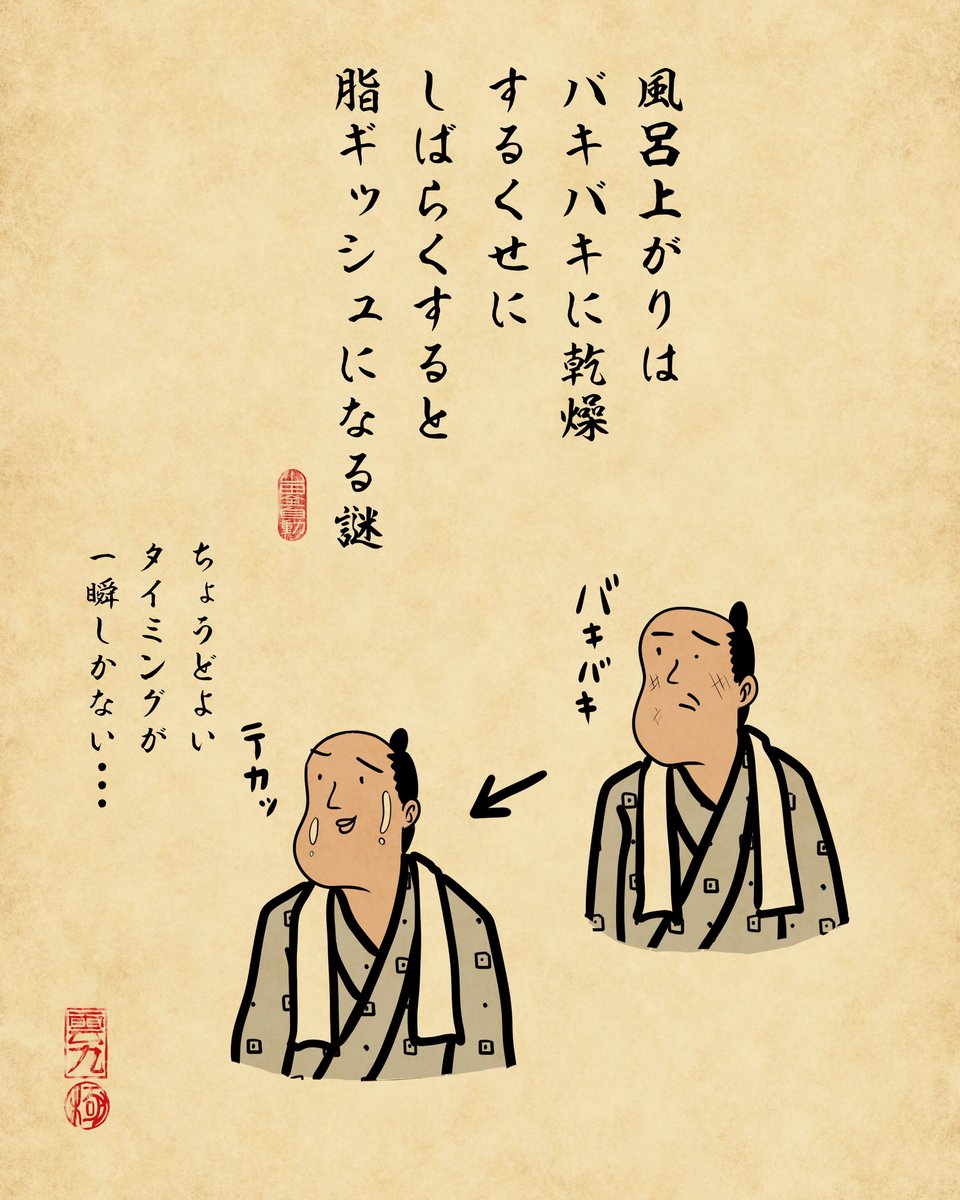 風呂上がりは
バキバキに乾燥
するくせに
しばらくすると
脂ギッシュになる謎
バキバキ
テカッ
ちょうどよい
タイミングが
一瞬しかない・・・